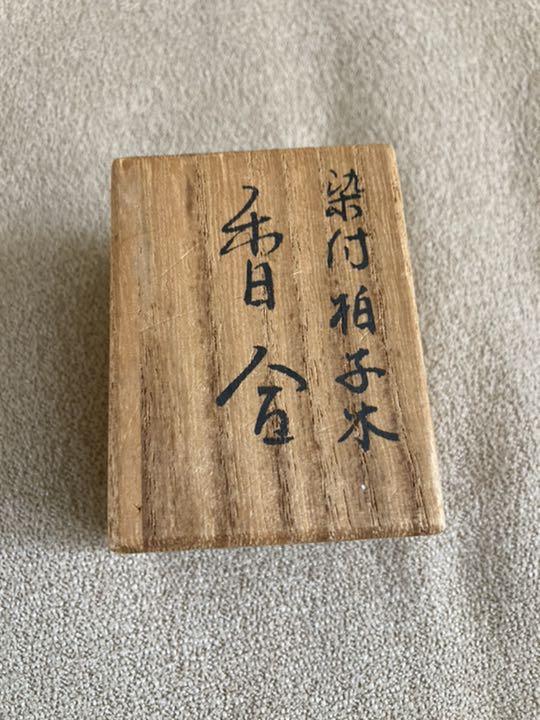 染付拍子木
香合